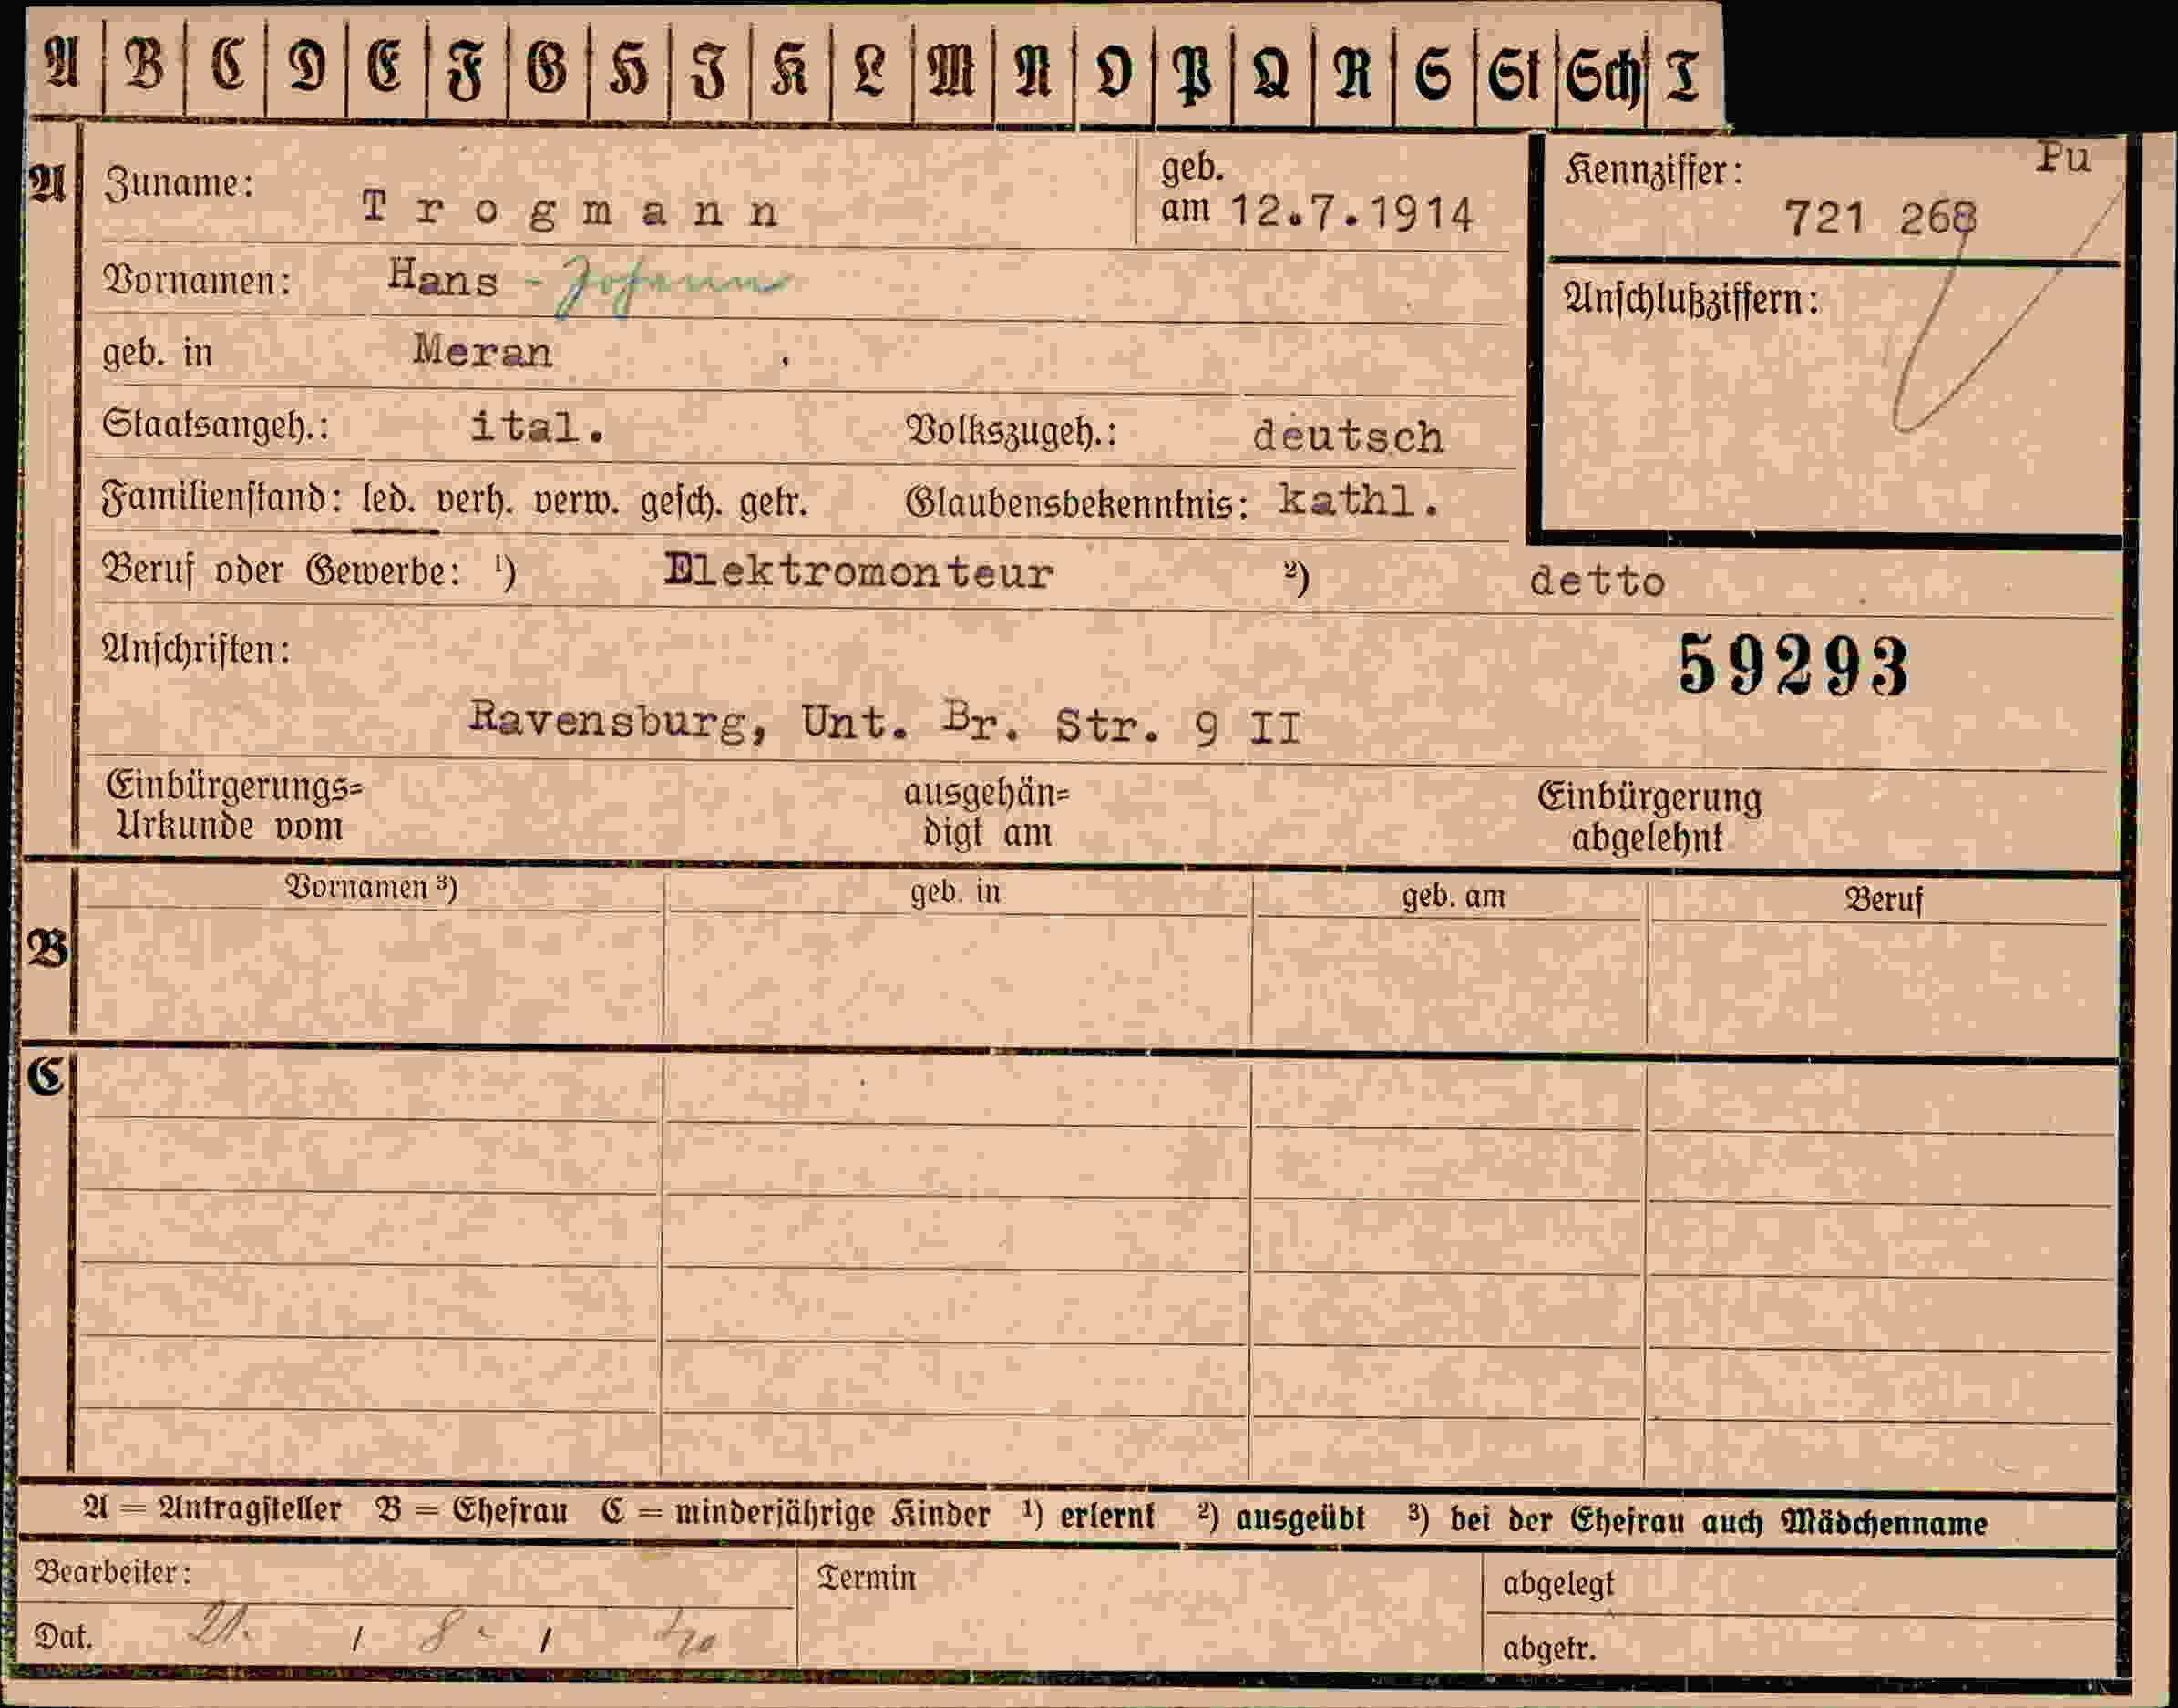 A B C D E F G H J K L M N O P Q R S St Sch T
A Zuname: Trogmann geb. am 12.7.1914 Kennziffer: Pu 721 268
Vornamen: Hans - Johann Anschlußziffern:
geb. in Meran
Staatsangeh.: ital. Volkszugeh.: deutsch
Familienstand: led. verh. verw. gesch. getr. Glaubensbekenntnis: kathl.
Beruf oder Gewerbe: ¹) Elektromonteur ²) detto
Anschriften: 59293
Ravensburg, Unt. Br. Str. 9 II
Einbürgerungs= ausgehän= Einbürgerung
Urkunde vom digt am abgelehnt
B Vornamen ³) geb. in geb. am Beruf
C
A = Antragsteller B = Ehefrau C = minderjährige Kinder ¹) erlernt ²) ausgeübt ³) bei der Ehefrau auch Mädchenname
Bearbeiter: Termin abgelegt
Dat. 21. / 8. / abgetr.